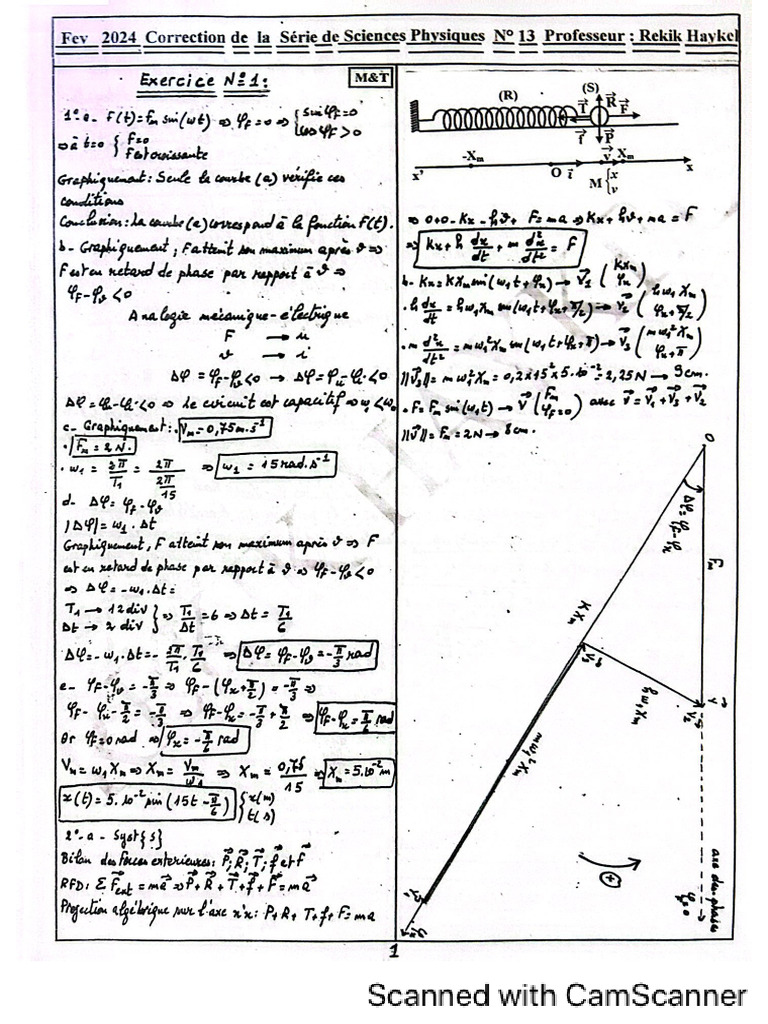 Fev 2024 Correction de la Série de Sciences Physiques N° 13 Professeur : Rekik Haykel
Exercice N°1:
M&T
1°- a - F(t) = Fm sin(ωt) => φF = 0 => { sin φF = 0
cos φF > 0
=> à t=0 { F=0
F est croissante
Graphiquement : Seule la courbe (a) vérifie ces
conditions
Conclusion : la courbe (a) correspond à la fonction F(t).
b - Graphiquement ; F atteint son maximum après v =>
F est en retard de phase par rapport à v =>
φF - φv < 0
Analogie mécanique - électrique
F → u
v → i
Δφ = φF - φv < 0 → Δφ = φu - φi < 0
Δφ = φu - φi < 0 => le circuit est capacitif => ω1 < ω0
c - Graphiquement : . Vm = 0,75 m.s⁻¹
. Fm = 2 N.
. ω1 = 2π/T1 = 2π/(2π/15) => ω1 = 15 rad.s⁻¹
d - Δφ = φF - φv
|Δφ| = ω1 . Δt
Graphiquement, F atteint son maximum après v => F
est en retard de phase par rapport à v => φF - φv < 0
=> Δφ = - ω1 . Δt =
T1 → 12 div
Δt → 2 div } => T1/Δt = 6 => Δt = T1/6
Δφ = - ω1 . Δt = - 2π/T1 . T1/6 => Δφ = φF - φv = - π/3 rad
e - φF - φv = - π/3 => φF - (φx + π/2) = - π/3 =>
φF - φx - π/2 = - π/3 => φF - φx = - π/3 + π/2 => φF - φx = π/6 rad
Or φF = 0 rad => φx = - π/6 rad
Vm = ω1 Xm => Xm = Vm/ω1 => Xm = 0,75/15 => Xm = 5.10⁻² m
x(t) = 5.10⁻² sin(15t - π/6) { x(m)
t(s)
2°- a - Syst {S}
Bilan des forces exterieures : P⃗ ; R⃗ ; T⃗ ; f⃗ et F⃗
RFD : Σ F⃗ext = m a⃗ => P⃗ + R⃗ + T⃗ + f⃗ + F⃗ = m a⃗
Projection algébrique sur l'axe x'x : P + R + T + f + F = ma
(R) (S)
T⃗ R⃗ F⃗
f⃗ P⃗
-Xm v⃗ Xm
x' O i⃗ M { x x
v
=> 0 + 0 - Kx - hv + F = ma => Kx + hv + ma = F
=> Kx + h dx/dt + m d²x/dt² = F
b - Kx = K Xm sin(ω1t + φx) → V⃗1 ( K Xm
φx )
. h dx/dt = h ω1 Xm sin(ω1t + φx + π/2) → V⃗2 ( h ω1 Xm
φx + π/2 )
. m d²x/dt² = m ω1² Xm sin(ω1t + φx + π) → V⃗3 ( m ω1² Xm
φx + π )
||V⃗3|| = m ω1² Xm = 0,2 x 15² x 5.10⁻² = 2,25 N → 9 cm.
. F = Fm sin(ω1t) → V⃗ ( Fm
φF = 0 ) avec V⃗ = V⃗1 + V⃗3 + V⃗2
||V⃗|| = Fm = 2 N → 8 cm.
O
Δφ = φF - φx
Fm
K Xm
V⃗3
h ω1 Xm
V⃗
V⃗2
m ω1² Xm
V⃗1
+
axe des phases
φ = 0
φx
1
Scanned with CamScanner